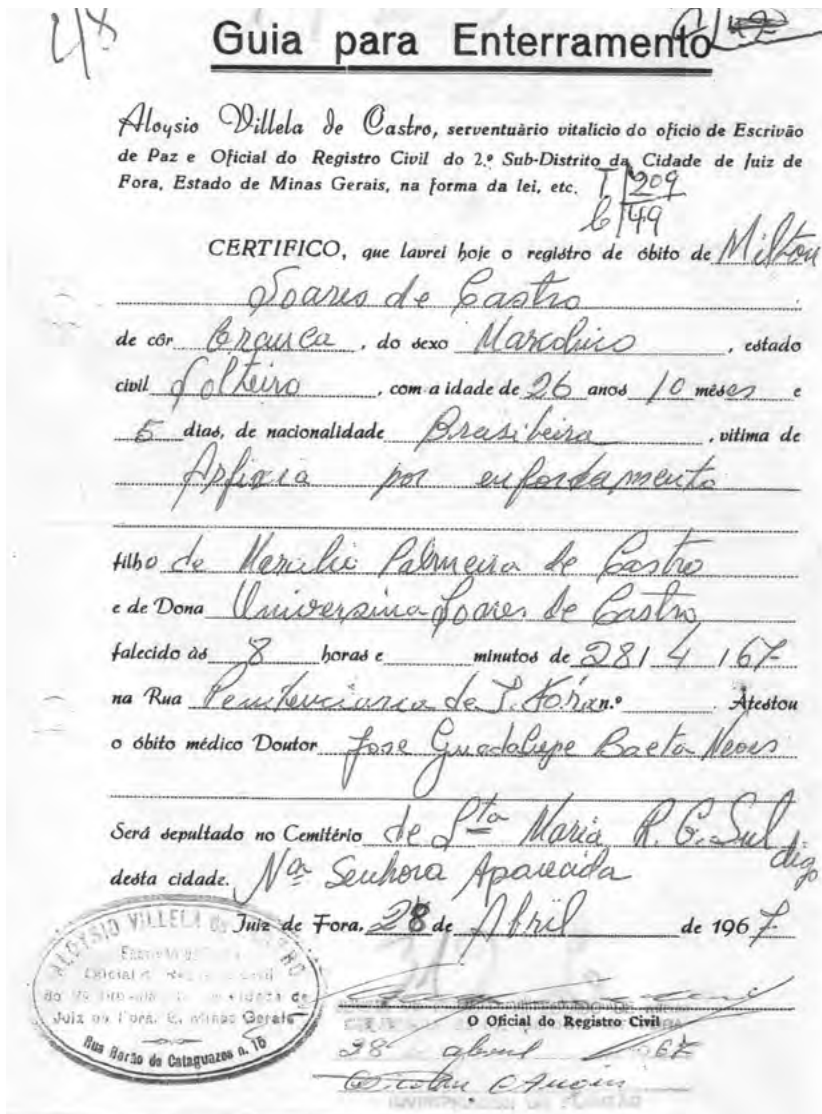 48
Guia para Enterramento
Aloysio Villela de Castro, serventuário vitalício do ofício de Escrivão
de Paz e Oficial do Registro Civil do 2.º Sub-Distrito da Cidade de Juiz de
Fora, Estado de Minas Gerais, na forma da lei, etc. T 209
C 49
CERTIFICO, que lavrei hoje o registro de óbito de Milton
Soares de Castro
de côr branca, do sexo Masculino, estado
civil Solteiro, com a idade de 26 anos 10 mêses e
5 dias, de nacionalidade Brasileira, vitima de
Asfixia por enforcamento
filho de Marcilio Palmeira de Castro
e de Dona Universina Soares de Castro
falecido às 8 horas e minutos de 28/4/67
na Rua Penitenciaria de J. Fóra n.º Atestou
o óbito médico Doutor Jose Guadalupe Baeta Neves
Será sepultado no Cemitério de Sta Maria R. G. Sul digo
desta cidade. Na Senhora Aparecida
Juiz de Fora, 28 de Abril de 1967
ALOYSIO VILLELA DE CASTRO
Oficial do Registro Civil
cidade de
Juiz de Fora, E. Minas Gerais
Rua Barão de Cataguazes n. 16
O Oficial do Registro Civil
28 abril 67